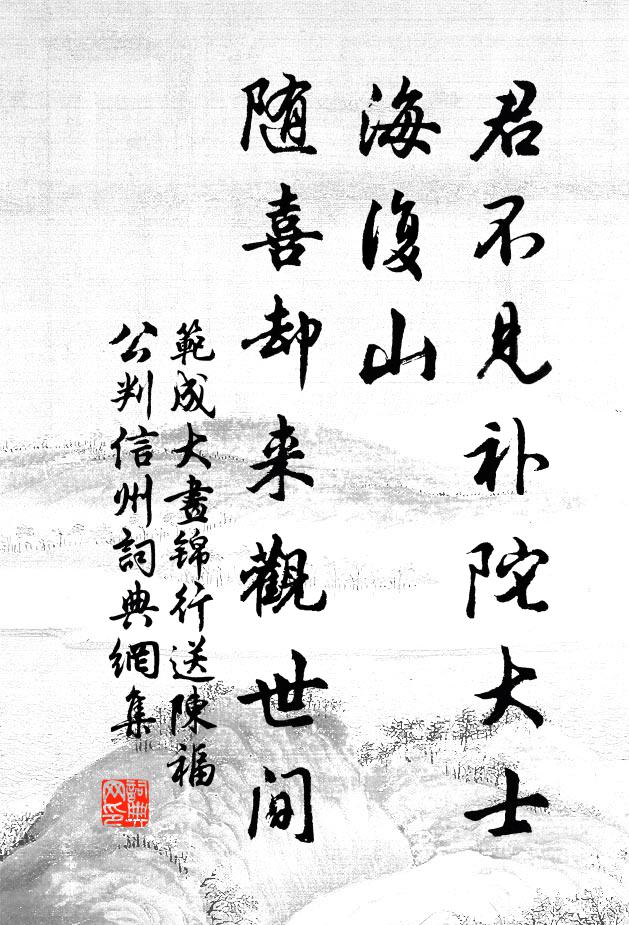 君不见补陀大士
海复山
随喜却来觀世间
範成大晝锦行送陳福
公判信州詞典網集
詞典
网印